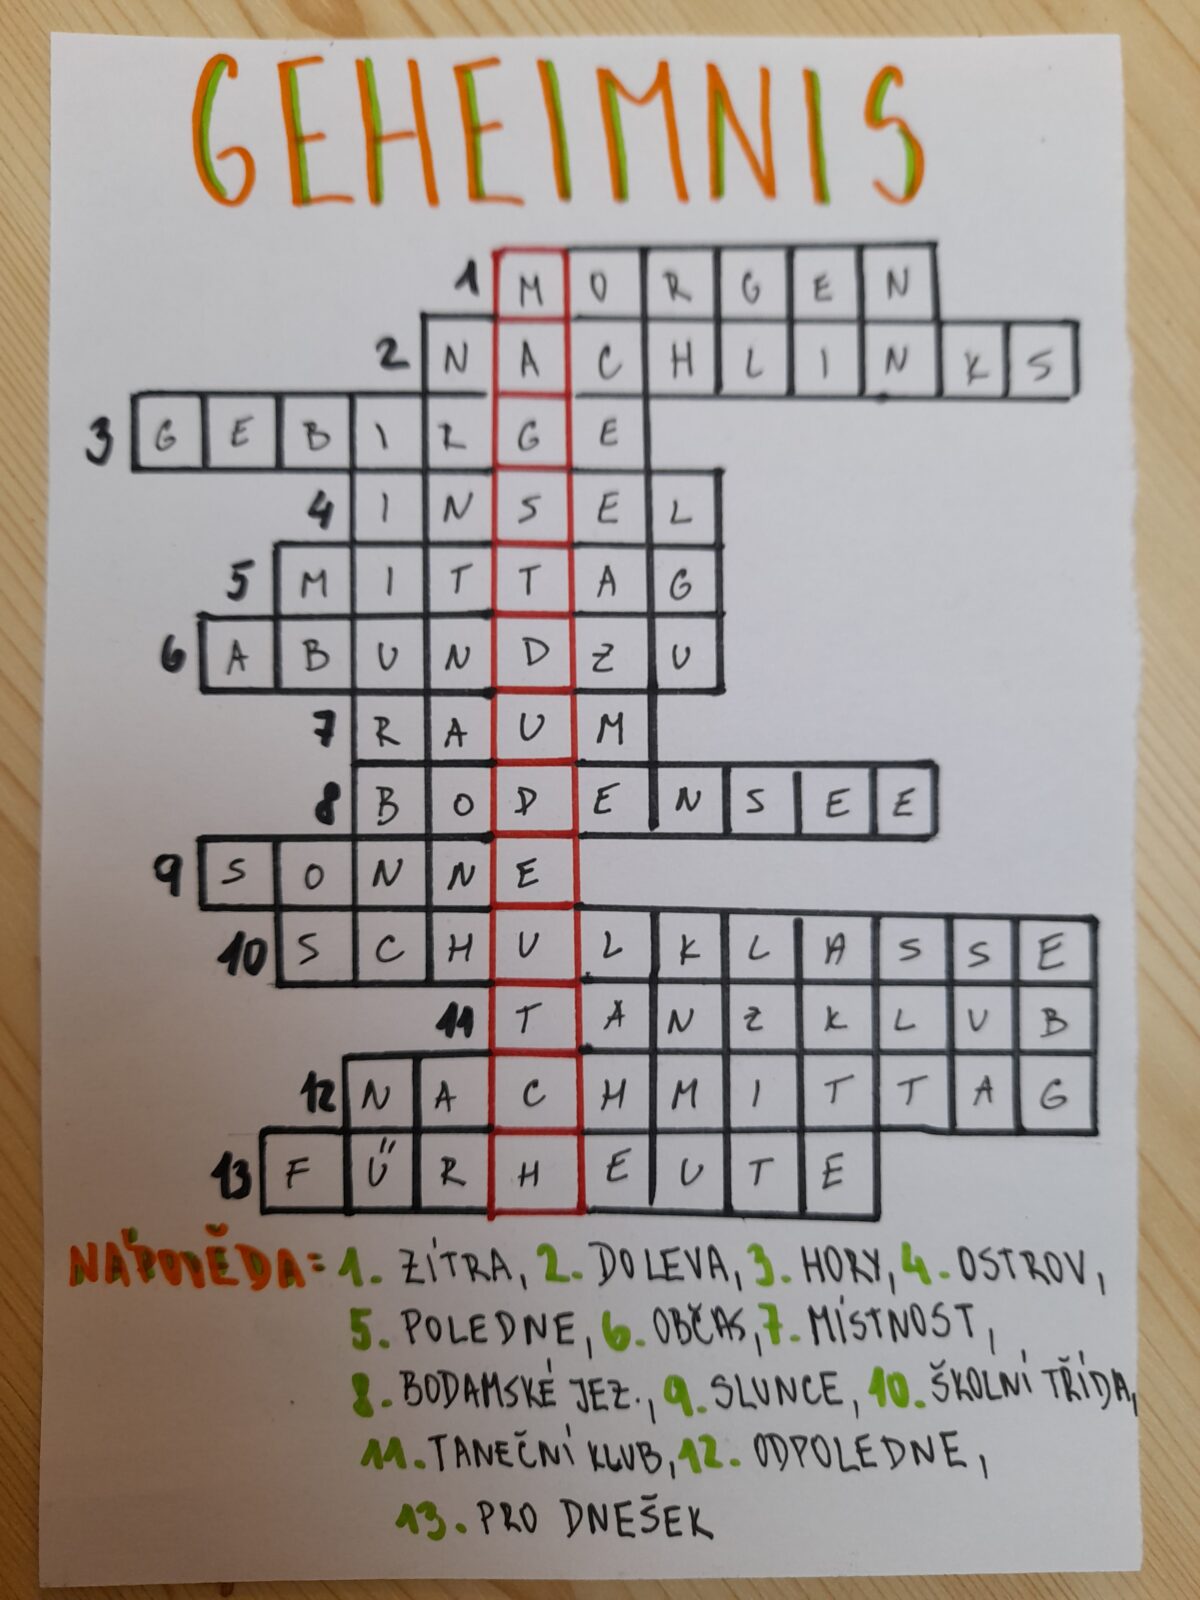 GEHEIMNIS
1 MORGEN
2 NACHLINKS
3 GEBIRGE
4 INSEL
5 MITTAG
6 ABUNDZU
7 RAUM
8 BODENSEE
9 SONNE
10 SCHULKLASSE
11 TANZKLUB
12 NACHMITTAG
13 FÜRHEUTE
NÁPOVĚDA= 1. ZÍTRA, 2. DOLEVA, 3. HORY, 4. OSTROV,
5. POLEDNE, 6. OBČAS, 7. MÍSTNOST,
8. BODAMSKÉ JEZ., 9. SLUNCE, 10. ŠKOLNÍ TŘÍDA,
11. TANEČNÍ KLUB, 12. ODPOLEDNE,
13. PRO DNEŠEK